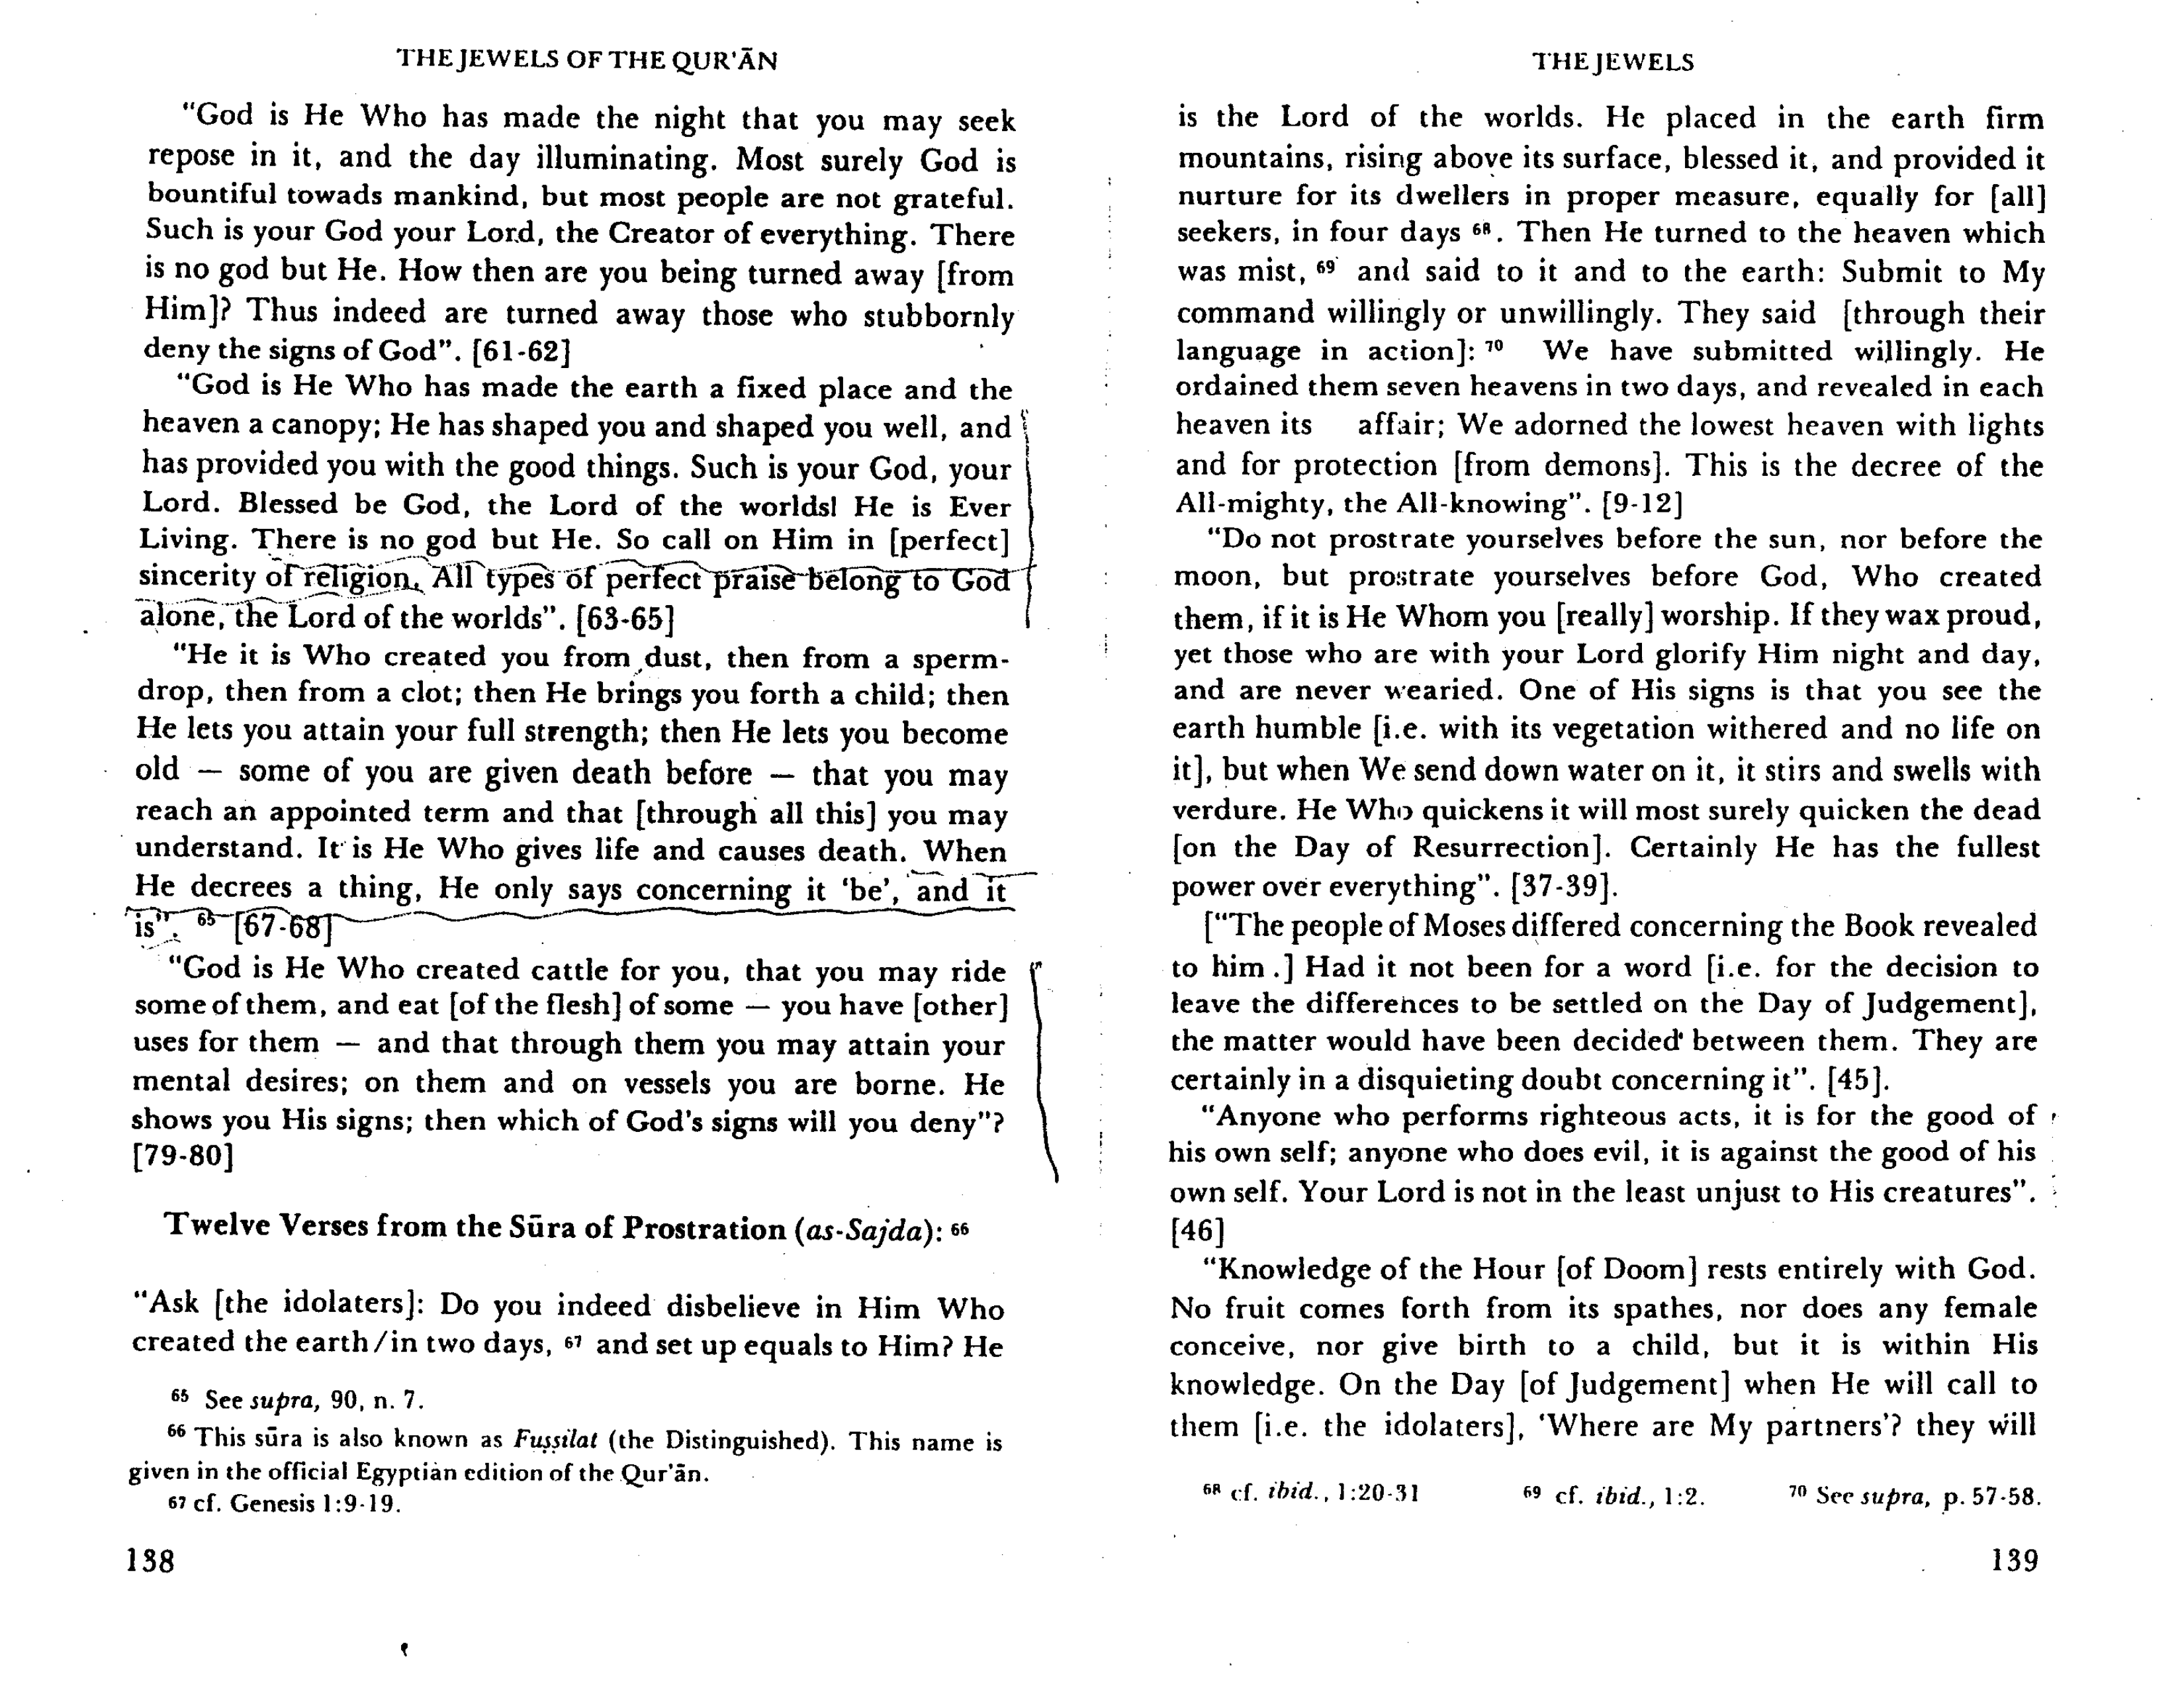 THE JEWELS OF THE QUR'ĀN
"God is He Who has made the night that you may seek
repose in it, and the day illuminating. Most surely God is
bountiful towads mankind, but most people are not grateful.
Such is your God your Lord, the Creator of everything. There
is no god but He. How then are you being turned away [from
Him]? Thus indeed are turned away those who stubbornly
deny the signs of God". [61-62]
"God is He Who has made the earth a fixed place and the
heaven a canopy; He has shaped you and shaped you well, and
has provided you with the good things. Such is your God, your
Lord. Blessed be God, the Lord of the worlds! He is Ever
Living. There is no god but He. So call on Him in [perfect]
sincerity of religion. All types of perfect praise belong to God
alone, the Lord of the worlds". [63-65]
"He it is Who created you from dust, then from a sperm-
drop, then from a clot; then He brings you forth a child; then
He lets you attain your full strength; then He lets you become
old — some of you are given death before — that you may
reach an appointed term and that [through all this] you may
understand. It is He Who gives life and causes death. When
He decrees a thing, He only says concerning it 'be', and it
is". 65 [67-68]
"God is He Who created cattle for you, that you may ride
some of them, and eat [of the flesh] of some — you have [other]
uses for them — and that through them you may attain your
mental desires; on them and on vessels you are borne. He
shows you His signs; then which of God's signs will you deny"?
[79-80]
Twelve Verses from the Sūra of Prostration (as-Sajda): 66
"Ask [the idolaters]: Do you indeed disbelieve in Him Who
created the earth/in two days, 67 and set up equals to Him? He
65 See supra, 90, n. 7.
66 This sūra is also known as Fuṣṣilat (the Distinguished). This name is
given in the official Egyptian edition of the Qur'ān.
67 cf. Genesis 1:9-19.
138
THE JEWELS
is the Lord of the worlds. He placed in the earth firm
mountains, rising above its surface, blessed it, and provided it
nurture for its dwellers in proper measure, equally for [all]
seekers, in four days 68. Then He turned to the heaven which
was mist, 69 and said to it and to the earth: Submit to My
command willingly or unwillingly. They said [through their
language in action]: 70 We have submitted willingly. He
ordained them seven heavens in two days, and revealed in each
heaven its affair; We adorned the lowest heaven with lights
and for protection [from demons]. This is the decree of the
All-mighty, the All-knowing". [9-12]
"Do not prostrate yourselves before the sun, nor before the
moon, but prostrate yourselves before God, Who created
them, if it is He Whom you [really] worship. If they wax proud,
yet those who are with your Lord glorify Him night and day,
and are never wearied. One of His signs is that you see the
earth humble [i.e. with its vegetation withered and no life on
it], but when We send down water on it, it stirs and swells with
verdure. He Who quickens it will most surely quicken the dead
[on the Day of Resurrection]. Certainly He has the fullest
power over everything". [37-39].
["The people of Moses differed concerning the Book revealed
to him.] Had it not been for a word [i.e. for the decision to
leave the differences to be settled on the Day of Judgement],
the matter would have been decided between them. They are
certainly in a disquieting doubt concerning it". [45].
"Anyone who performs righteous acts, it is for the good of
his own self; anyone who does evil, it is against the good of his
own self. Your Lord is not in the least unjust to His creatures".
[46]
"Knowledge of the Hour [of Doom] rests entirely with God.
No fruit comes forth from its spathes, nor does any female
conceive, nor give birth to a child, but it is within His
knowledge. On the Day [of Judgement] when He will call to
them [i.e. the idolaters], 'Where are My partners'? they will
68 cf. ibid., 1:20-31 69 cf. ibid., 1:2. 70 See supra, p. 57-58.
139